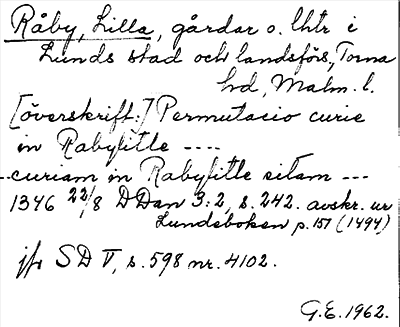 Råby, Lilla, gårdar o. lhtr i
Lunds stad och landsförs, Torna
hd, Malm. l.
[överskrift:] Permutacio curie
in Rabylitle ----
--curiam in Rabylitle sitam ---
1346 22/8 DDan 3:2, s. 242. avskr. ur
Lundeboken p. 157 (1494)
jfr SD V, s. 598 nr. 4102.
G.E. 1962.